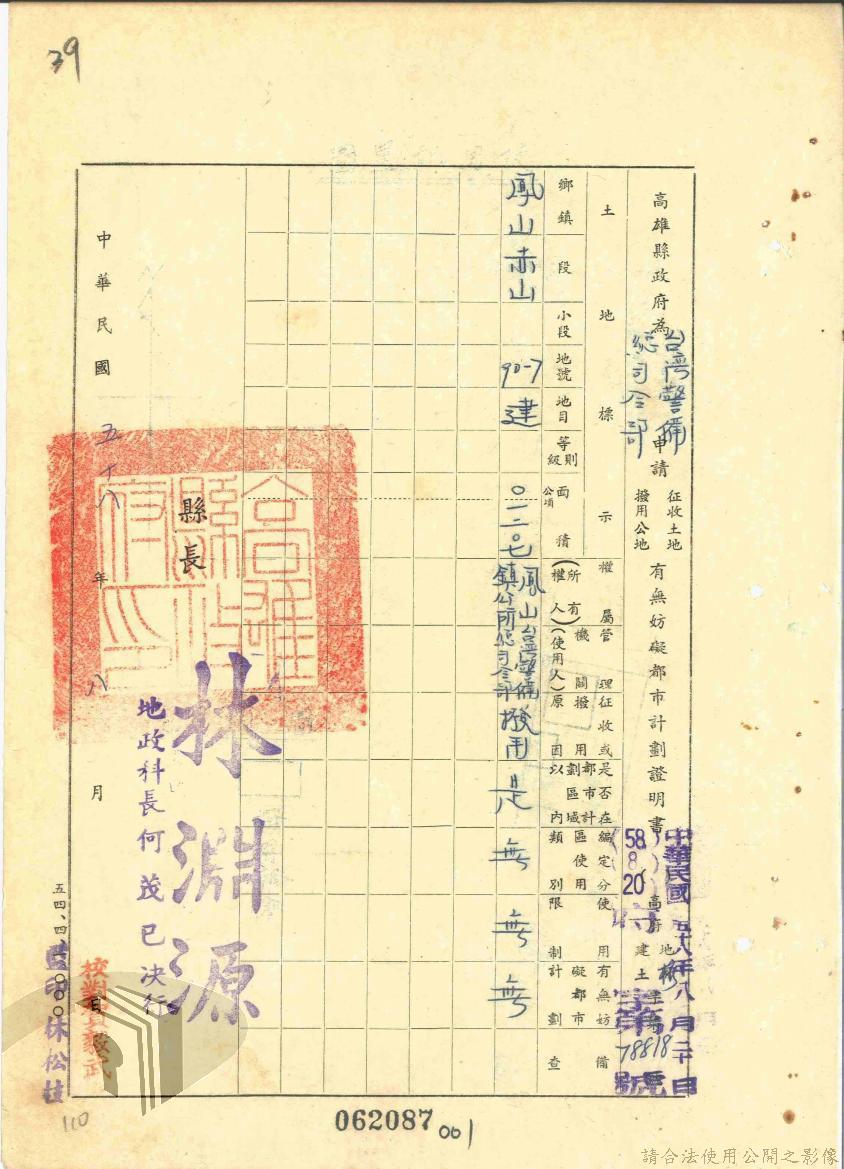 39
高雄縣政府為台灣警備總司令部申請征收土地撥用公地有無妨礙都市計劃證明書
中華民國五十八年八月二十日
58. 8. 20
高府地
建土字第78818號
土地標示
鄉鎮
段
小段
地號
地目
等則級
面積公頃
權屬(所有權人)
管理機關(使用人)
征收或撥用原因
是否在都市計劃區域以內
編定使用分區類別
使用限制
有無妨礙都市計劃
備查
鳳山
赤山
90-7
建
0一二0七
鳳山鎮公所
台灣警備總司令部
撥用
是
無
無
無
縣長
林淵源
地政科長何茂已決行
高雄縣政府印
中華民國五十八年八月 日
校對員
監印林松枝
五四、四、
110
062087
001
請合法使用公開之影像